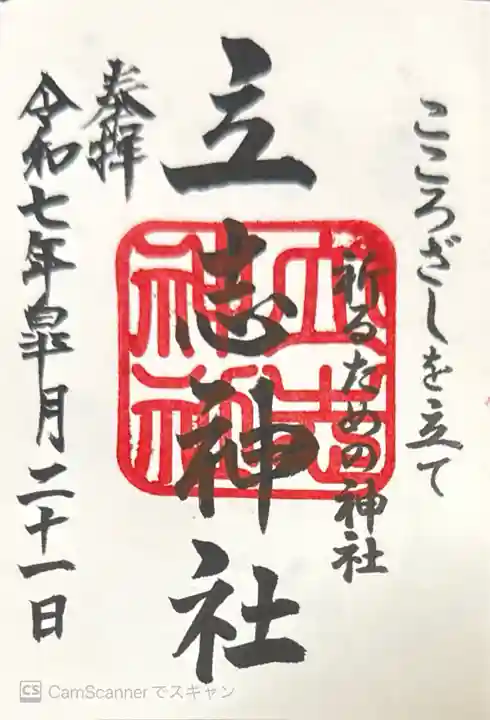 こころざしを立て
祈るための神社
立志神社
立志神社
奉拝
令和七年皐月二十一日
CS CamScanner でスキャン